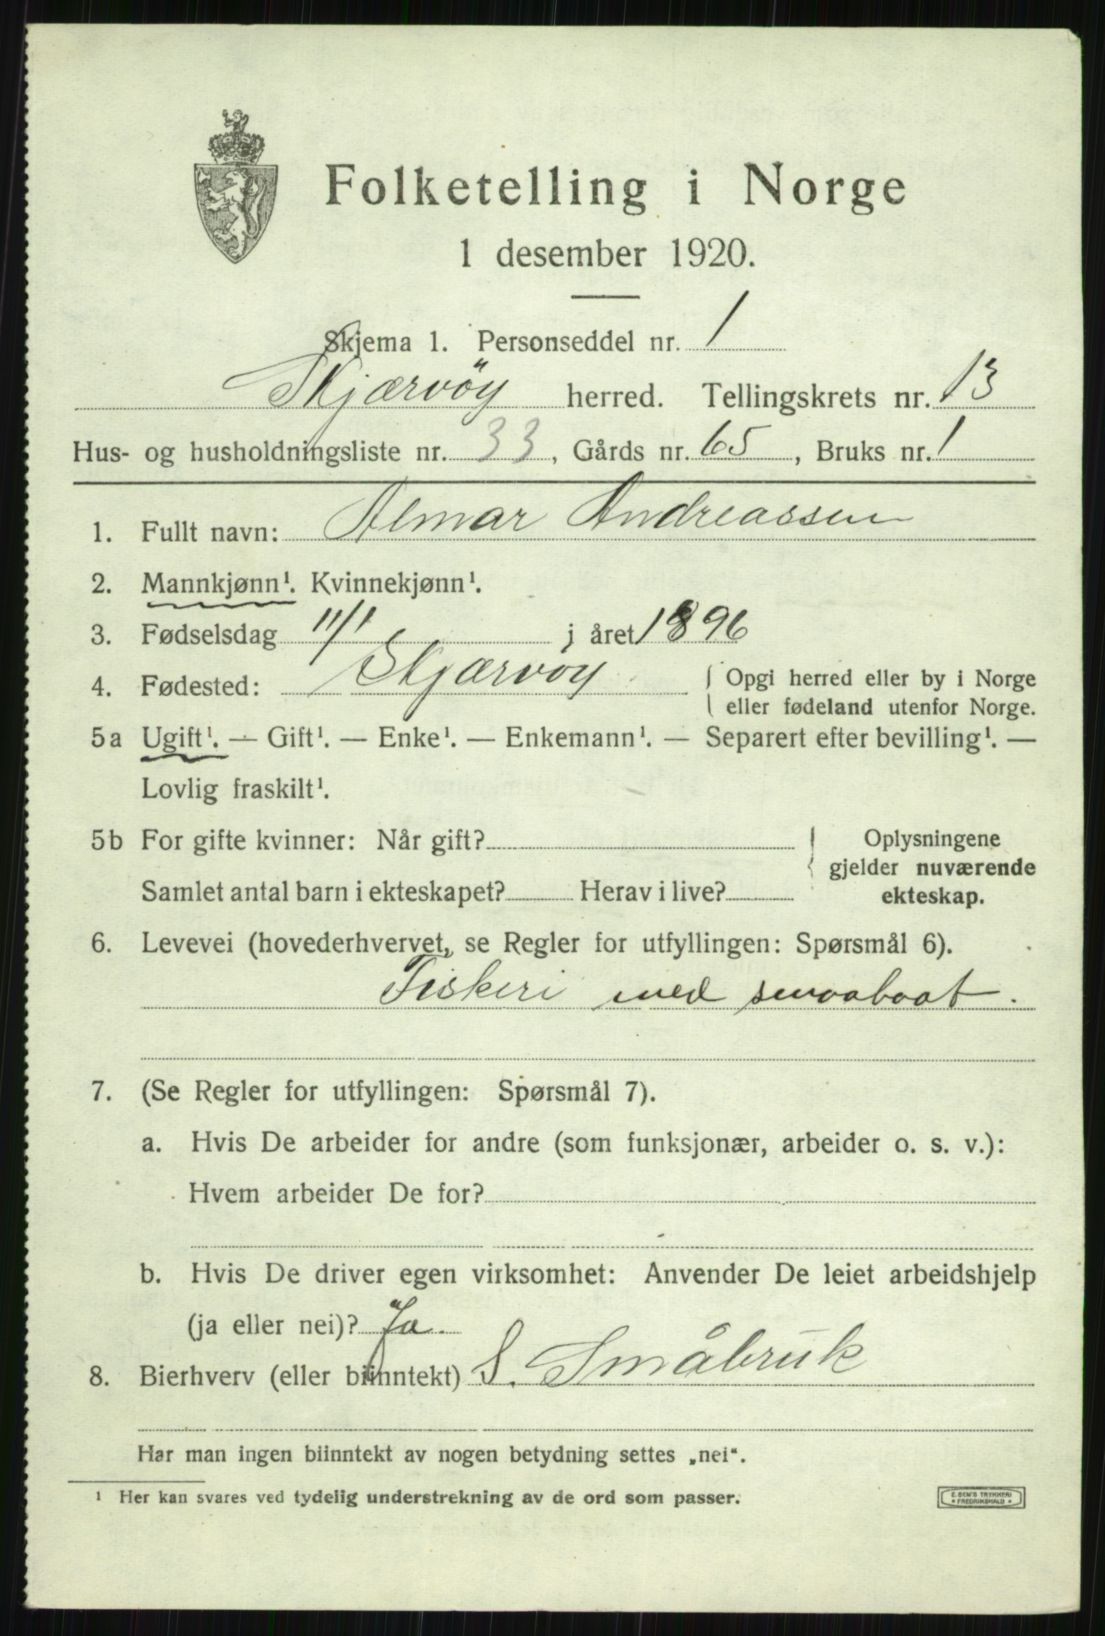 Folketelling i Norge
1 desember 1920.
Skjema 1. Personseddel nr. 1
Skjærvöy herred. Tellingskrets nr. 13
Hus- og husholdningsliste nr. 33, Gårds nr. 65, Bruks nr. 1
1. Fullt navn: Almar Andreassen
2. Mannkjønn¹. Kvinnekjønn¹.
3. Fødselsdag 11/1 i året 1896
4. Fødested: Skjærvöy { Opgi herred eller by i Norge
eller fødeland utenfor Norge.
5a Ugift¹. — Gift¹. — Enke¹. — Enkemann¹. — Separert efter bevilling¹. —
Lovlig fraskilt¹.
5b For gifte kvinner: Når gift? } Oplysningene
gjelder nuværende
Samlet antal barn i ekteskapet? Herav i live? ekteskap.
6. Levevei (hovederhvervet, se Regler for utfyllingen: Spørsmål 6).
Fiskeri med smaabaat.
7. (Se Regler for utfyllingen: Spørsmål 7).
a. Hvis De arbeider for andre (som funksjonær, arbeider o. s. v.):
Hvem arbeider De for?
b. Hvis De driver egen virksomhet: Anvender De leiet arbeidshjelp
(ja eller nei)? Ja.
8. Bierhverv (eller biinntekt) S. Småbruk
Har man ingen biinntekt av nogen betydning settes „nei“.
¹ Her kan svares ved tydelig understrekning av de ord som passer.
E. SEM'S TRYKKERI
• FREDRIKSHALD •